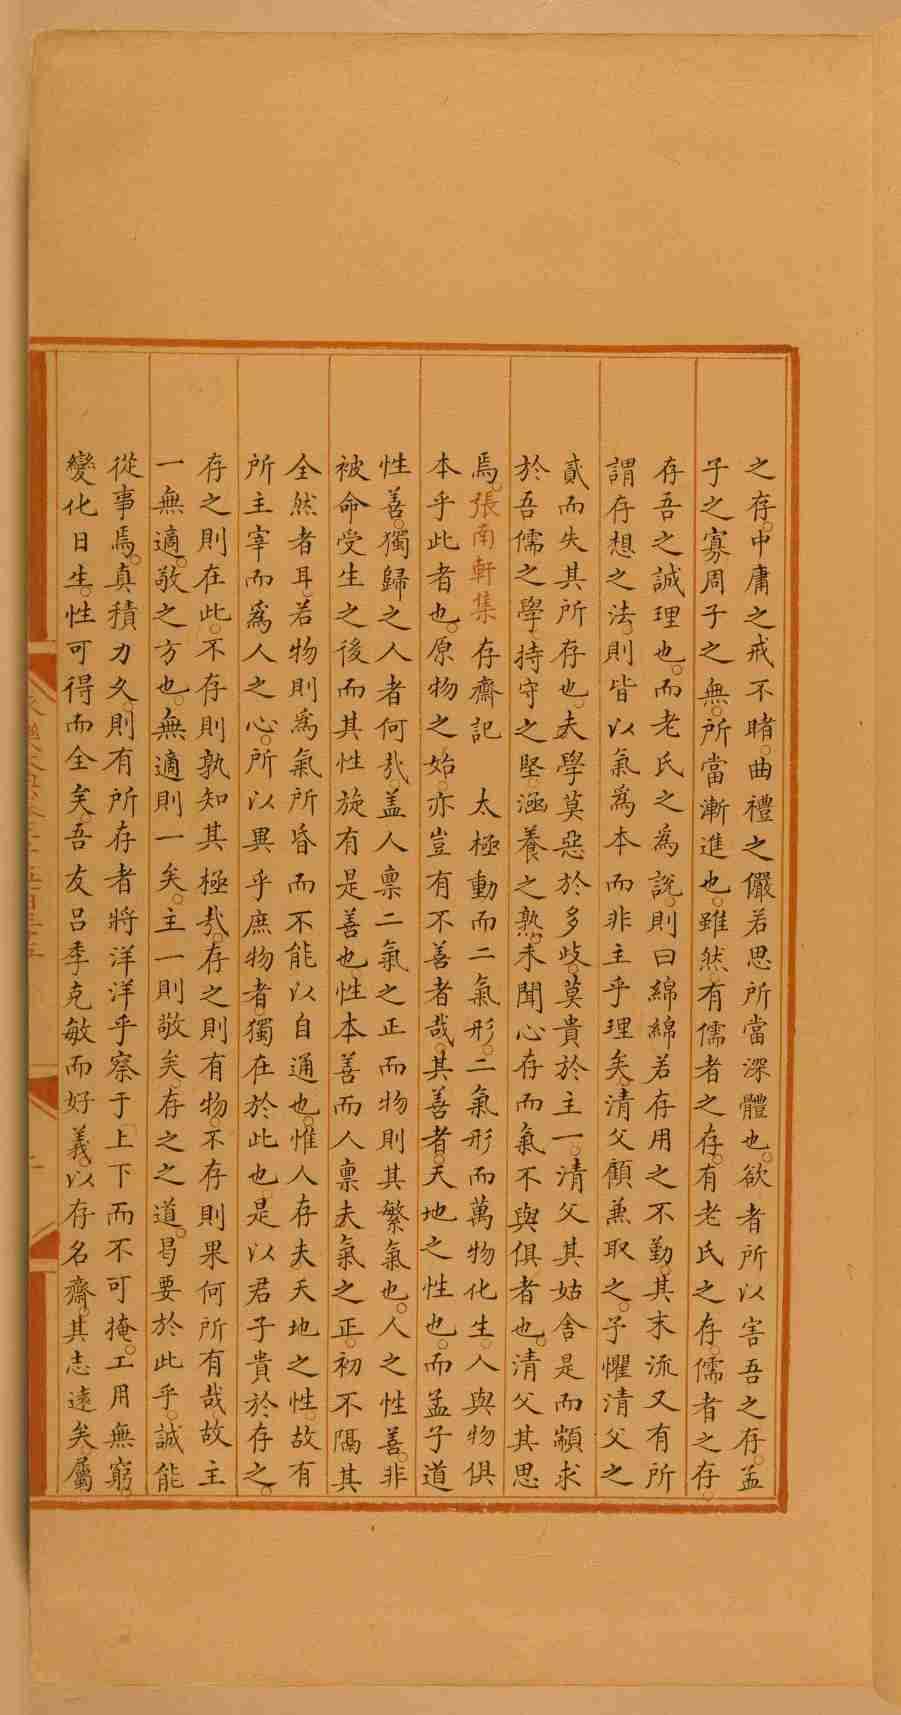 之存中庸之戒不睹曲禮之儼若思所當深體也欲者所以害吾之存孟
子之寡周子之無所當漸進也雖然有儒者之存有老氏之存儒者之存
存吾之誠理也而老氏之為說則曰綿綿若存用之不勤其末流又有所
謂存想之法則皆以氣為本而非主乎理矣清父顧兼取之予懼清父之
貳而失其所存也夫學莫惡於多歧莫貴於主一清父其姑舍是而顓求
於吾儒之學持守之堅涵養之熟未聞心存而氣不與俱者也清父其思
焉張南軒集存齋記 太極動而二氣形二氣形而萬物化生人與物俱
本乎此者也原物之始亦豈有不善者哉其善者天地之性也而孟子道
性善獨歸之人者何㢤盖人禀二氣之正而物則其繁氣也人之性善非
被命受生之後而其性旋有是善也性本善而人禀夫氣之正初不隔其
全然者耳若物則為氣所昏而不能以自通也惟人存夫天地之性故有
所主宰而為人之心所以異乎庶物者獨在於此也是以君子貴於存之
存之則在此不存則孰知其極㢤存之則有物不存則果何所有哉故主
一無適敬之方也無適則一矣主一則敬矣存之之道曷要於此乎誠能
從事焉真積力久則有所存者將洋洋乎察于上下而不可掩工用無窮
變化日生性可得而全矣吾友呂季克敏而好義以存名齋其志遠矣屬